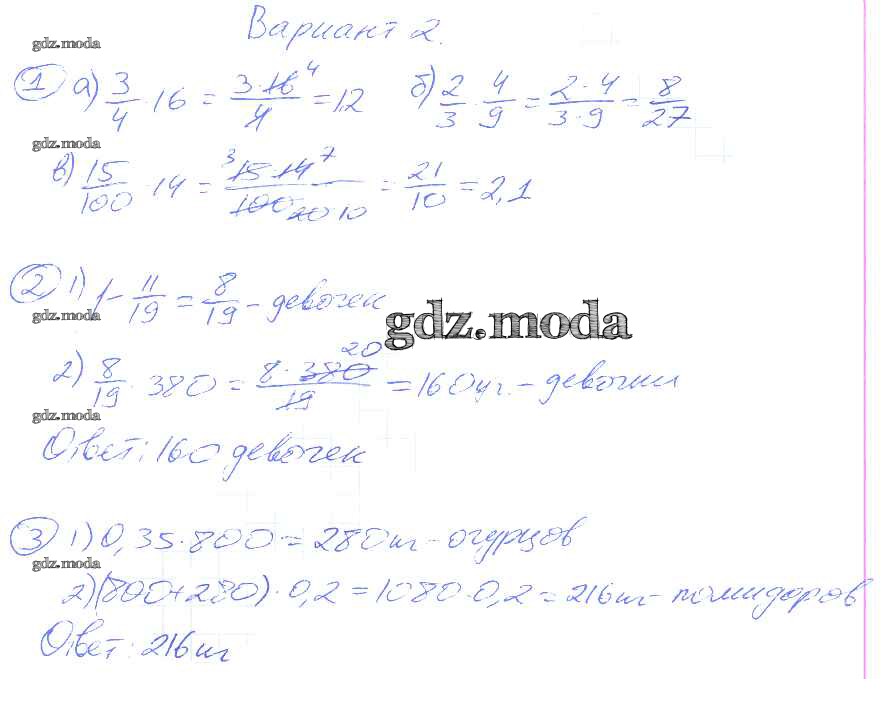 Вариант 2.
gdz.moda
① а) 3/4 · 16 = 3·16 4/4 = 12 б) 2/3 · 4/9 = 2·4/3·9 = 8/27
gdz.moda
в) 15/100 · 14 = 3 15·14 7/100 20 10 = 21/10 = 2,1
② 1) 1 - 11/19 = 8/19 - девочек
gdz.moda
gdz.moda
2) 8/19 · 380 = 8·380 20/19 = 160 уч. - девочки
gdz.moda
Ответ: 160 девочек
③ 1) 0,35·800 = 280 кг - огурцов
gdz.moda
2) (800+280)·0,2 = 1080·0,2 = 216 кг - помидоров
Ответ: 216 кг